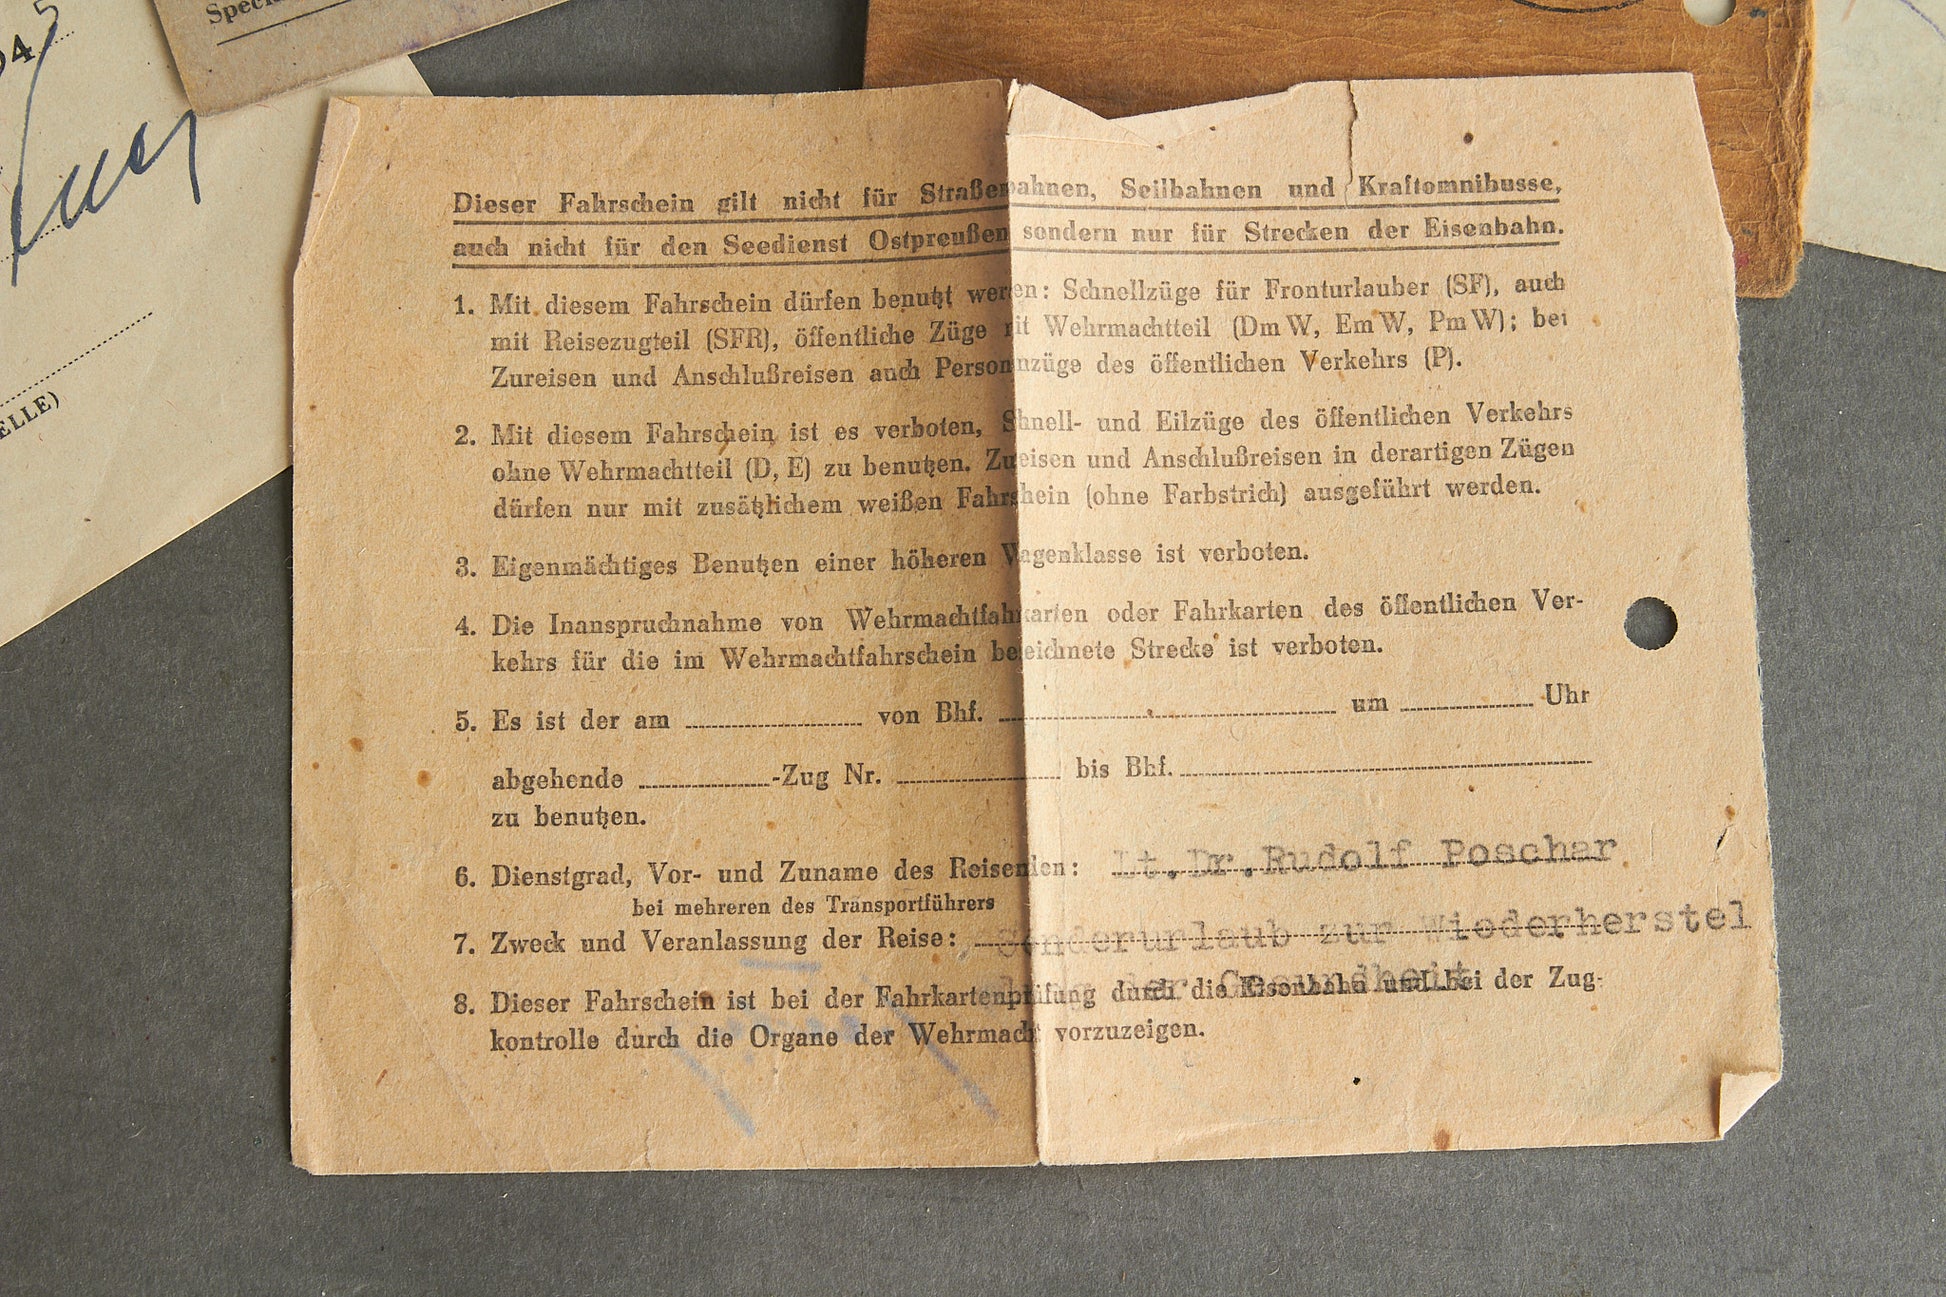 Dieser Fahrschein gilt nicht für Straßenbahnen, Seilbahnen und Kraftomnibusse,
auch nicht für den Seedienst Ostpreußen sondern nur für Strecken der Eisenbahn.
1. Mit diesem Fahrschein dürfen benutzt weren: Schnellzüge für Fronturlauber (SF), auch
mit Reisezugteil (SFR), öffentliche Züge mit Wehrmachtteil (DmW, EmW, PmW); bei
Zureisen und Anschlußreisen auch Personenzüge des öffentlichen Verkehrs (P).
2. Mit diesem Fahrschein ist es verboten, Schnell- und Eilzüge des öffentlichen Verkehrs
ohne Wehrmachtteil (D, E) zu benutzen. Zureisen und Anschlußreisen in derartigen Zügen
dürfen nur mit zusätzlichem weißen Fahrschein (ohne Farbstrich) ausgeführt werden.
3. Eigenmächtiges Benutzen einer höheren Wagenklasse ist verboten.
4. Die Inanspruchnahme von Wehrmachtfahrkarten oder Fahrkarten des öffentlichen Ver-
kehrs für die im Wehrmachtfahrschein bezeichnete Strecke ist verboten.
5. Es ist der am von Bhf. um Uhr
abgehende -Zug Nr. bis Bhf.
zu benutzen.
6. Dienstgrad, Vor- und Zuname des Reisenden: Lt.Dr.Rudolf Poschar
bei mehreren des Transportführers
7. Zweck und Veranlassung der Reise: Sonderurlaub zur Wiederherstel
der Gesundheit
8. Dieser Fahrschein ist bei der Fahrkartenprüfung durch die Eisenbahn und bei der Zug-
kontrolle durch die Organe der Wehrmacht vorzuzeigen.
ELLE)